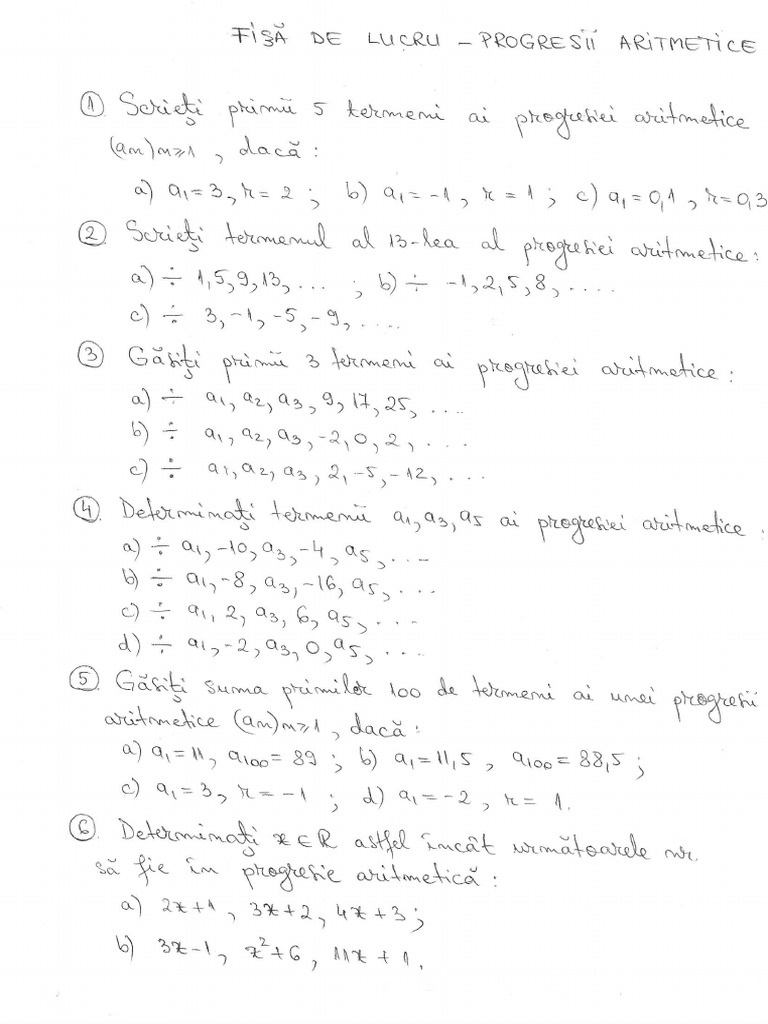 FIȘĂ DE LUCRU – PROGRESII ARITMETICE
① Scrieți primii 5 termeni ai progresiei aritmetice
(an)n≥1, dacă:
a) a1=3, r=2; b) a1=-1, r=1; c) a1=0,1, r=0,3
② Scrieți termenul al 13-lea al progresiei aritmetice:
a) ÷ 1,5,9,13,... ; b) ÷ -1,2,5,8,....
c) ÷ 3,-1,-5,-9,....
③ Găsiți primii 3 termeni ai progresiei aritmetice:
a) ÷ a1, a2, a3, 9, 17, 25, ....
b) ÷ a1, a2, a3, -2, 0, 2, ...
c) ÷ a1, a2, a3, 2, -5, -12, ...
④ Determinați termenii a1, a3, a5 ai progresiei aritmetice:
a) ÷ a1, -10, a3, -4, a5, ...
b) ÷ a1, -8, a3, -16, a5, ...
c) ÷ a1, 2, a3, 6, a5, ...
d) ÷ a1, -2, a3, 0, a5, ...
⑤ Găsiți suma primilor 100 de termeni ai unei progresii
aritmetice (an)n≥1, dacă:
a) a1=11, a100=89; b) a1=11,5, a100=88,5;
c) a1=3, r=-1; d) a1=-2, r=1.
⑥ Determinați x∈R astfel încât următoarele nr.
să fie în progresie aritmetică:
a) 2x+1, 3x+2, 4x+3;
b) 3x-1, x²+6, 11x+1.